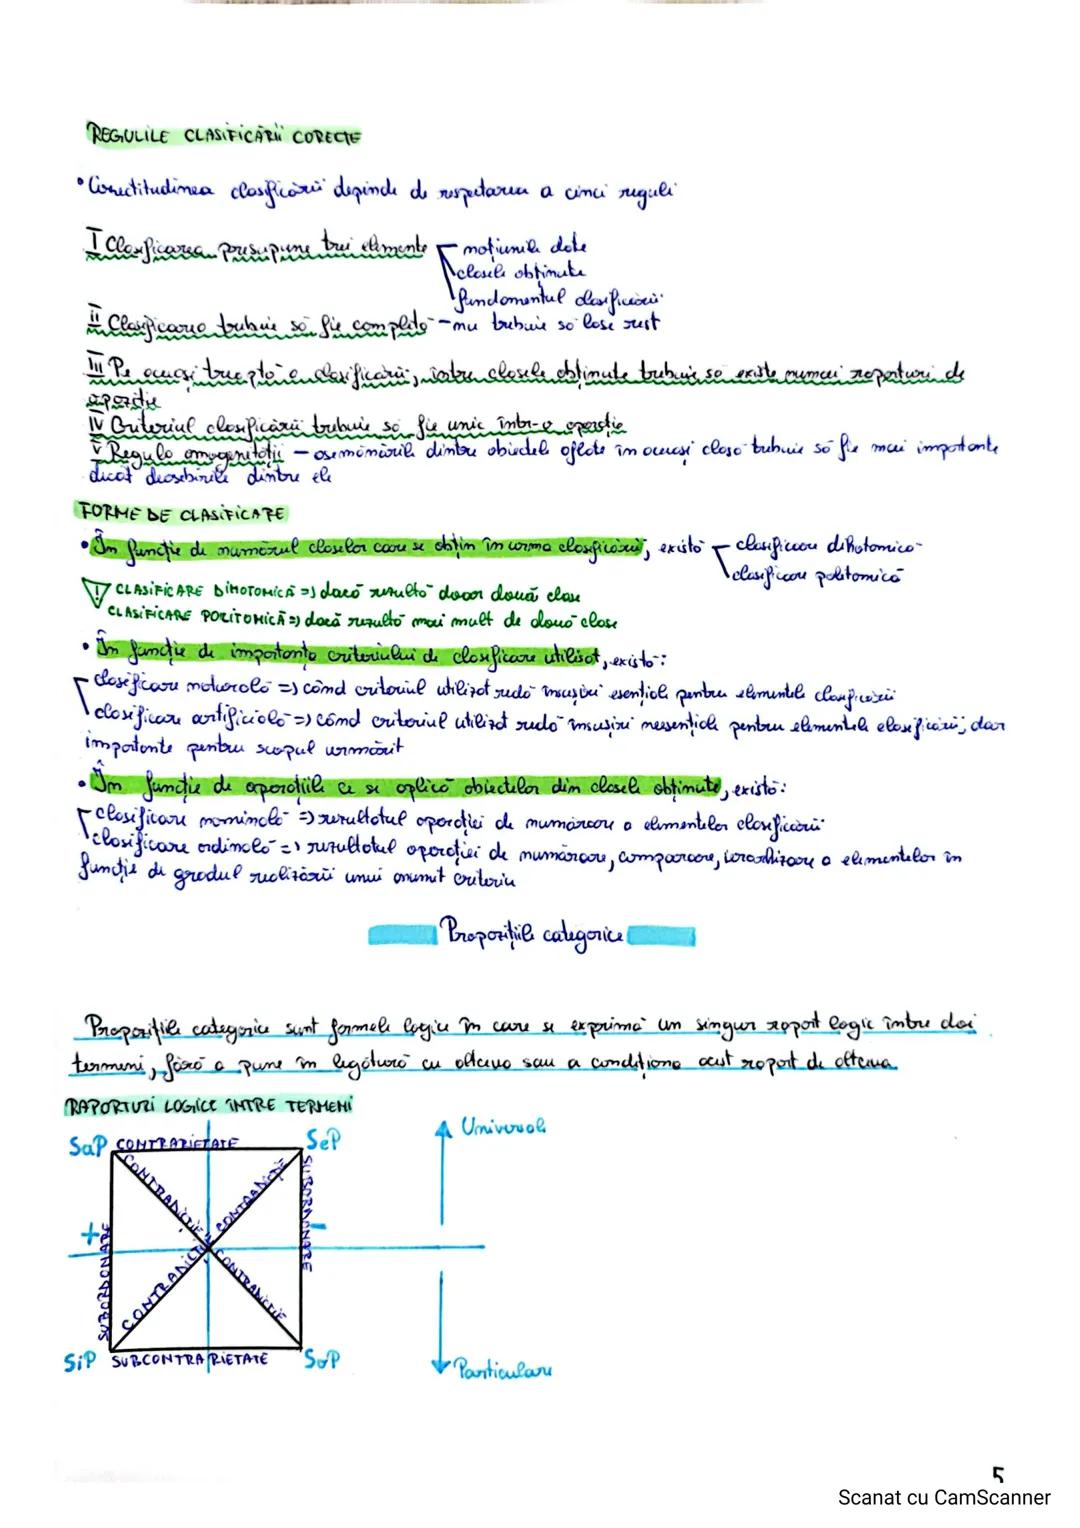 REGULILE CLASIFICĂRII CORECTE
• Corectitudinea clasificării depinde de respectarea a cinci reguli
I Clasificarea presupune trei elemente
noțiunile date
clasele obținute
fundamentul clasificării
II Clasificarea trebuie să fie completă - nu trebuie să lase rest
III Pe aceași treaptă a clasificării, între clasele obținute trebuie să existe numai raporturi de
opoziție
IV Criteriul clasificării trebuie să fie unic într-o operație
V Regula omogenității - asemănările dintre obiectele aflate în aceeași clasă trebuie să fie mai importante
decât deosebirile dintre ele
FORME DE CLASIFICARE
• În funcție de numărul claselor care se obțin în urma clasificării, există
clasificare dihotomică
clasificare politomică
! CLASIFICARE DIHOTOMICĂ => dacă rezultă doar două clase
CLASIFICARE POLITOMICĂ => dacă rezultă mai mult de două clase
• În funcție de importanța criteriului de clasificare utilizat, există:
clasificare naturală => când criteriul utilizat redă însușiri esențiale pentru elementele clasificării
clasificare artificială => când criteriul utilizat redă însușiri neesențiale pentru elementele clasificării, dar
importante pentru scopul urmărit
• În funcție de operațiile ce se aplică obiectelor din clasele obținute, există:
clasificare nominală => rezultatul operației de numărare a elementelor clasificării
clasificare ordinală => rezultatul operației de numărare, comparare, ierarhizare a elementelor în
funcție de gradul realizării unui anumit criteriu
Propozițiile categorice
Propozițiile categorice sunt formele logice în care se exprimă un singur raport logic între doi
termeni, fără a pune în legătură cu altceva sau a condiționa acest raport de altceva
RAPORTURI LOGICE ÎNTRE TERMENI
SaP CONTRARIETATE SeP
Universale
CONTRADICȚIE
CONTRADICȚIE
SUBORDONARE
+
-
SUBORDONARE
CONTRADICȚIE
CONTRADICȚIE
SiP SUBCONTRARIETATE SoP
Particulare
5
Scanat cu CamScanner